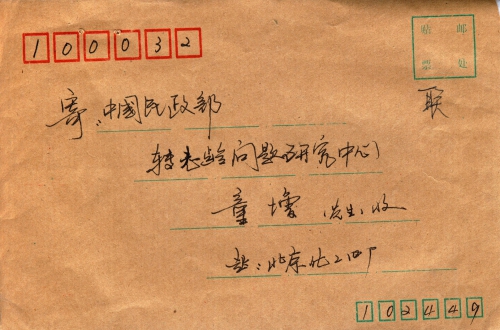 100032
贴 邮
票 处
联
寄：中國民政部
转老龄问题研究中心
童增 先生 收
北京化二四厂
102449